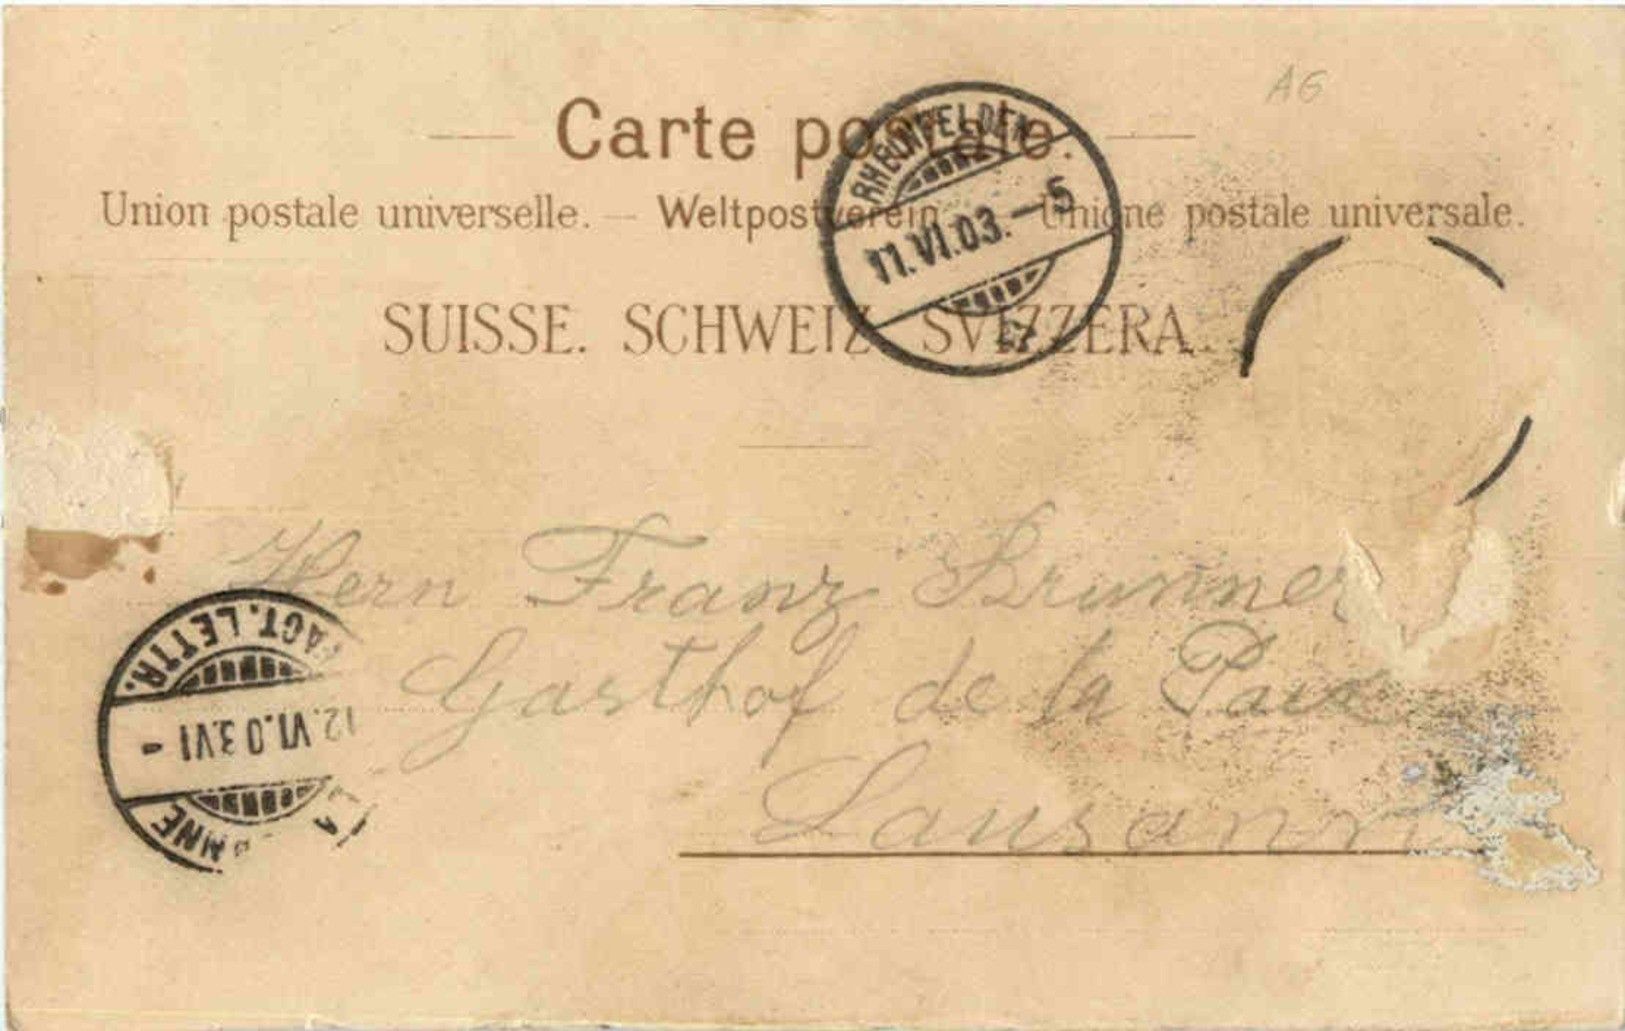 AG
Carte postale.
Union postale universelle. — Weltpostverein. — Unione postale universale.
SUISSE. SCHWEIZ. SVIZZERA.
RHEINFELDEN
11.VI.03.–5
Hern Franz Brunner
Gasthof de la Paix
Lausann
FACT. LETTR.
12.VI.03.VI